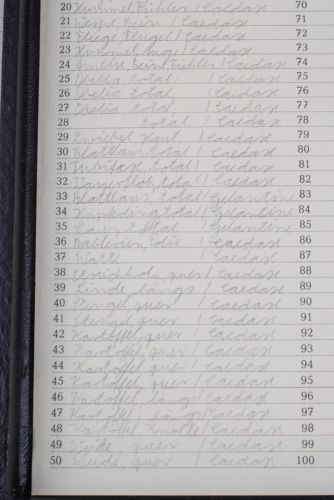 20 Hummel, Fühler / Caedax 70
21 Wespe, Bein / Caedax 71
22 Fliege, Flügel / Caedax 72
23 Hummel, Auge / Caedax 73
24 Ameise, Bein, Fühler / Caedax 74
25 Obelia, total / Caedax 75
26 Obelia, total / Caedax 76
27 Obelia, total / Caedax 77
28 total / Caedax 78
29 Zwiebel, Haut / Caedax 79
30 Blattlaus, total / Caedax 80
31 Tubifex, total / Caedax 81
32 Wasserfloh, total / Caedax 82
33 Blattlaus, total / Gelantine 83
34 total / Gelantine 84
35 Laus, total / Gelantine 85
36 / Caedax 86
37 Watte / Caedax 87
38 Streichholz, quer / Caedax 88
39 Linde, längs / Caedax 89
40 Stengel, quer / Caedax 90
41 Stengel, quer / Caedax 91
42 Kartoffel, quer / Caedax 92
43 Kartoffel, quer / Caedax 93
44 Kartoffel, quer / Caedax 94
45 Kartoffel, quer / Caedax 95
46 Kartoffel, längs / Caedax 96
47 Kartoffel, längs / Caedax 97
48 Kartoffel, Knolle / Caedax 98
49 Weide, quer / Caedax 99
50 Weide, quer / Caedax 100